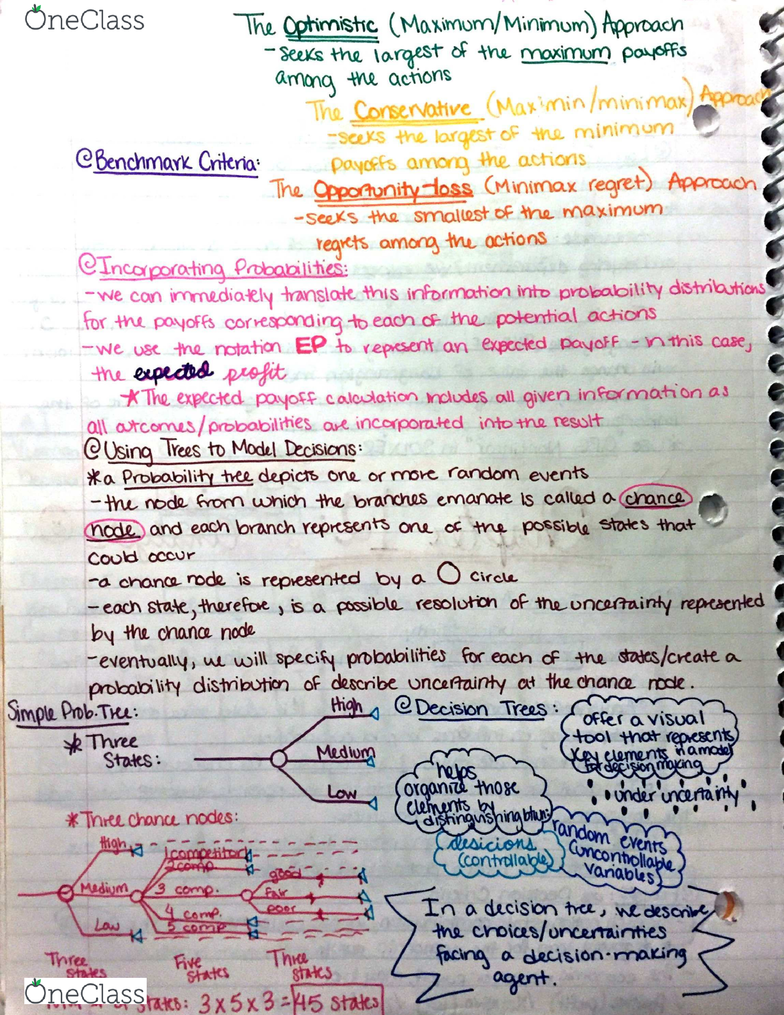 OneClass
The Optimistic (Maximum/Minimum) Approach
-seeks the largest of the maximum payoffs
among the actions
The Conservative (Maximin/minimax) Approach
-seeks the largest of the minimum
payoffs among the actions
@Benchmark Criteria:
The Opportunity-loss (Minimax regret) Approach
-seeks the smallest of the maximum
regrets among the actions
@Incorporating Probabilities:
-we can immediately translate this information into probability distributions
for the payoffs corresponding to each of the potential actions
-we use the notation EP to represent an expected payoff - in this case,
the expected profit
*The expected payoff calculation includes all given information as
all outcomes/probabilities are incorporated into the result
@Using Trees to Model Decisions:
*a Probability tree depicts one or more random events
-the node from which the branches emanate is called a chance
node and each branch represents one of the possible states that
could occur
-a chance node is represented by a O circle
-each state, therefore, is a possible resolution of the uncertainty represented
by the chance node
-eventually, we will specify probabilities for each of the states/create a
probability distribution of describe uncertainty at the chance node.
Simple Prob. Tree:
* Three
States:
High
Medium
Low
@Decision Trees:
offer a visual
tool that represents
key elements in a model
for decision making
under uncertainty
helps
organize those
elements by
distinguishing btwn
desicions
(controllable)
random events
(uncontrollable
variables)
*Three chance nodes:
High
Medium
Low
1 competitor
2 comp
3 comp.
4 comp.
5 comp
good
Fair
poor
Three
states
Five
states
Three
states
In a decision tree, we describe
the choices/uncertainties
facing a decision-making
agent.
OneClass
States: 3x5x3=45 states